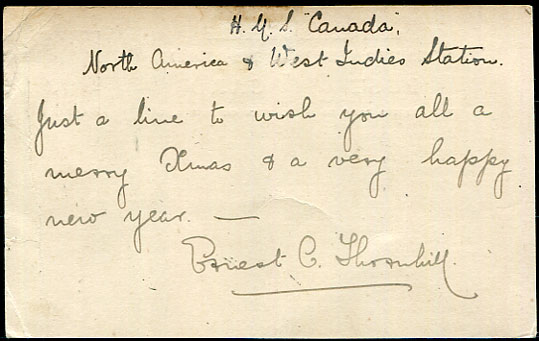 H. M. S. "Canada",
North America & West Indies Station.
Just a line to wish you all a
merry Xmas & a very happy
new year. —
Ernest C. Thornhill.